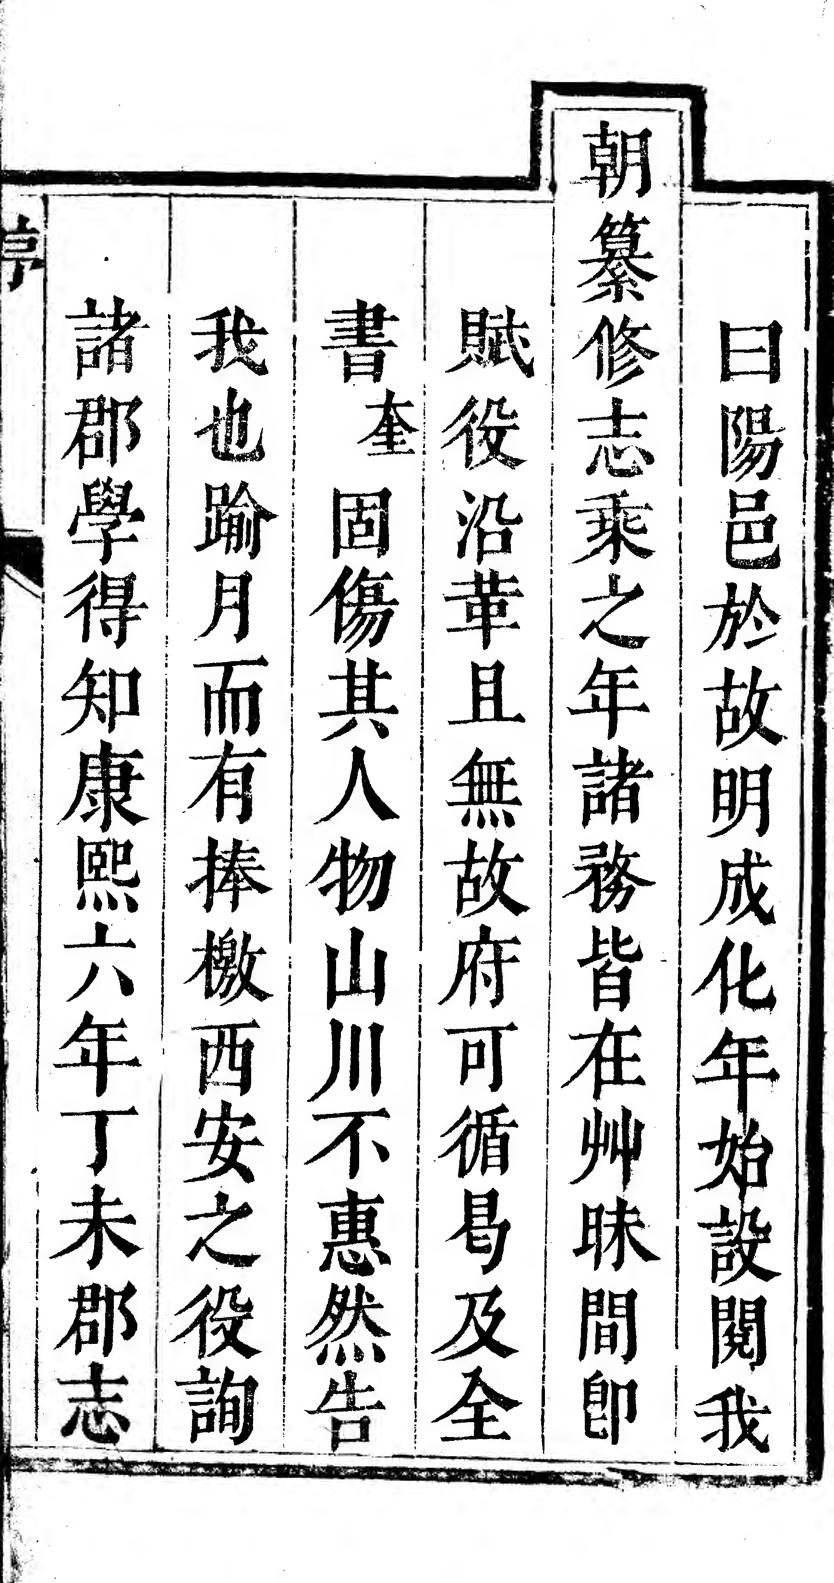 曰陽邑於故明成化年始設閱我
朝纂修志乘之年諸務皆在艸昧間卽
賦役沿革且無故府可循曷及全
書奎固傷其人物山川不惠然告
我也踰月而有捧檄西安之役詢
諸郡學得知康熙六年丁未郡志
序